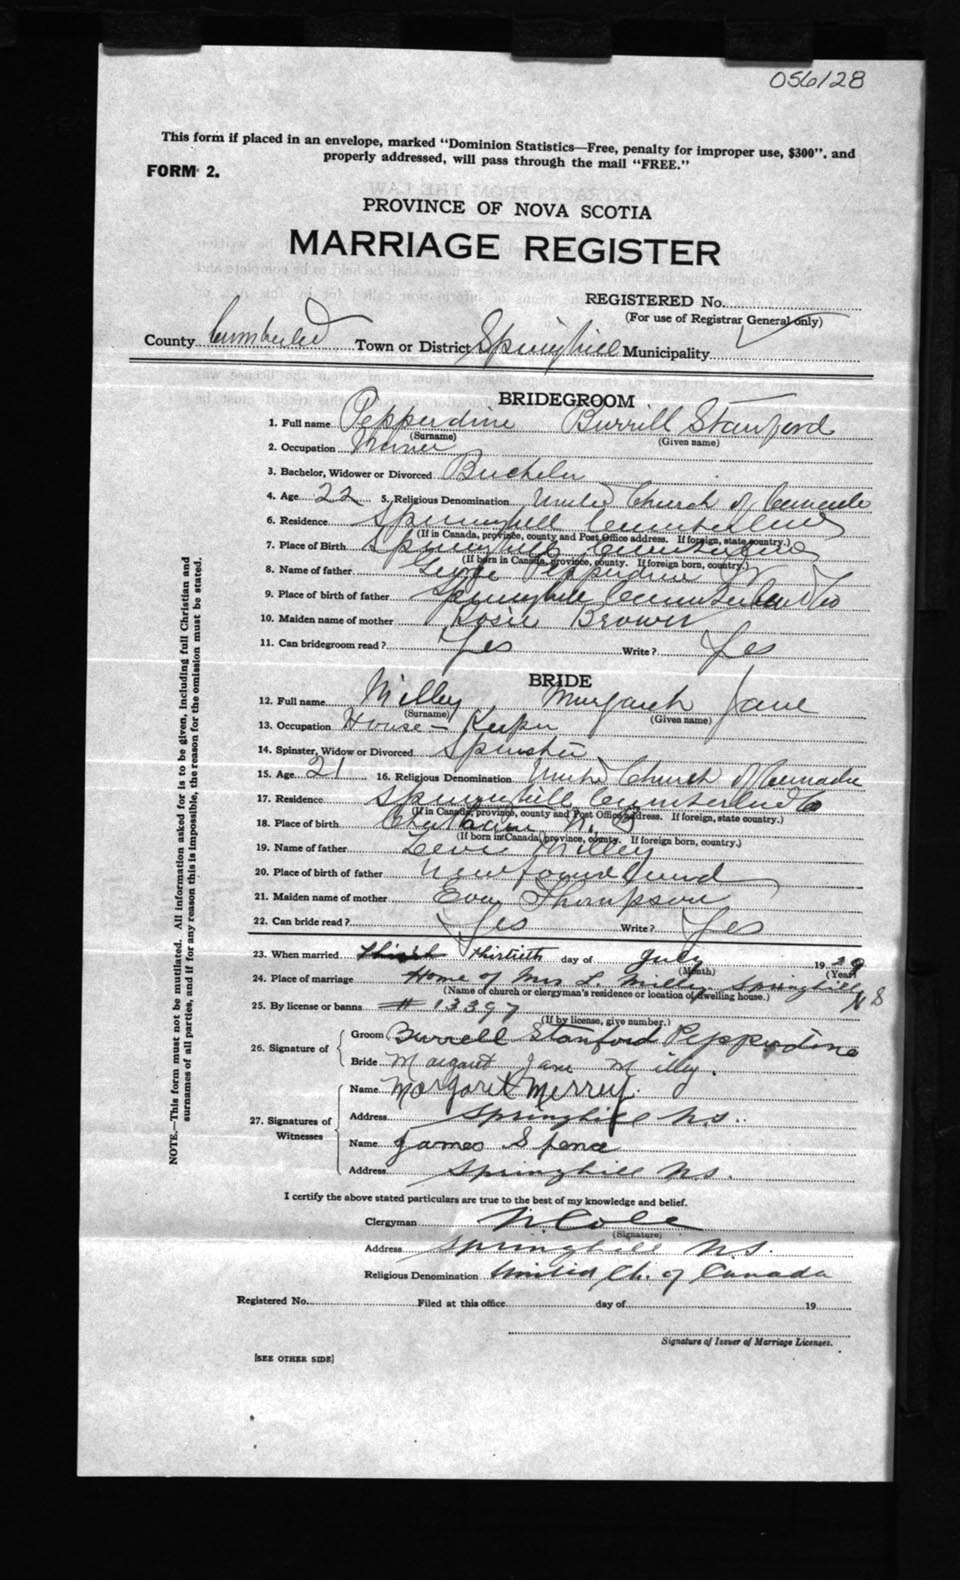 056128
This form if placed in an envelope, marked "Dominion Statistics—Free, penalty for improper use, $300", and
properly addressed, will pass through the mail "FREE."
FORM 2.
PROVINCE OF NOVA SCOTIA
MARRIAGE REGISTER
REGISTERED No.
(For use of Registrar General only)
County Cumberland Town or District Springhill Municipality
BRIDEGROOM
1. Full name Pepperdine Burrill Stanford
(Surname) (Given name)
2. Occupation Miner
3. Bachelor, Widower or Divorced Bachelor
4. Age 22 5. Religious Denomination United Church of Canada
6. Residence Springhill Cumberland
(If in Canada, province, county and Post Office address. If foreign, state country.)
7. Place of Birth Springhill Cumberland
(If born in Canada, province, county. If foreign born, country.)
8. Name of father George Pepperdine
9. Place of birth of father Springhill Cumberland Co
10. Maiden name of mother Rosie Brown
11. Can bridegroom read? Yes Write? Yes
BRIDE
12. Full name Milley Margaret Jane
(Surname) (Given name)
13. Occupation House-Keeper
14. Spinster, Widow or Divorced Spinster
15. Age 21 16. Religious Denomination United Church of Canada
17. Residence Springhill Cumberland Co
(If in Canada, province, county and Post Office address. If foreign, state country.)
18. Place of birth N. B
(If born in Canada, province, county. If foreign born, country.)
19. Name of father Levi Milley
20. Place of birth of father Newfoundland
21. Maiden name of mother Eva Thompson
22. Can bride read? Yes Write? Yes
23. When married thirtieth day of July 1929
(Month) (Year)
24. Place of marriage Home of Mrs L. Milley Springhill N S
(Name of church or clergyman's residence or location of dwelling house.)
25. By license or banns # 13397
(If by license, give number.)
26. Signature of
Groom Burrell Stanford Pepperdine
Bride Margaret Jane Milly.
27. Signatures of Witnesses
Name Margaret Merrey
Address Springhill N.S.
Name James Spence
Address Springhill N.S.
I certify the above stated particulars are true to the best of my knowledge and belief.
Clergyman N Cole
(Signature)
Address Springhill N.S.
Religious Denomination United Ch. of Canada
Registered No. Filed at this office day of 19
Signature of Issuer of Marriage Licenses.
[SEE OTHER SIDE]
NOTE.—This form must not be mutilated. All information asked for is to be given, including full Christian and
surnames of all parties, and if for any reason this is impossible, the reason for the omission must be stated.